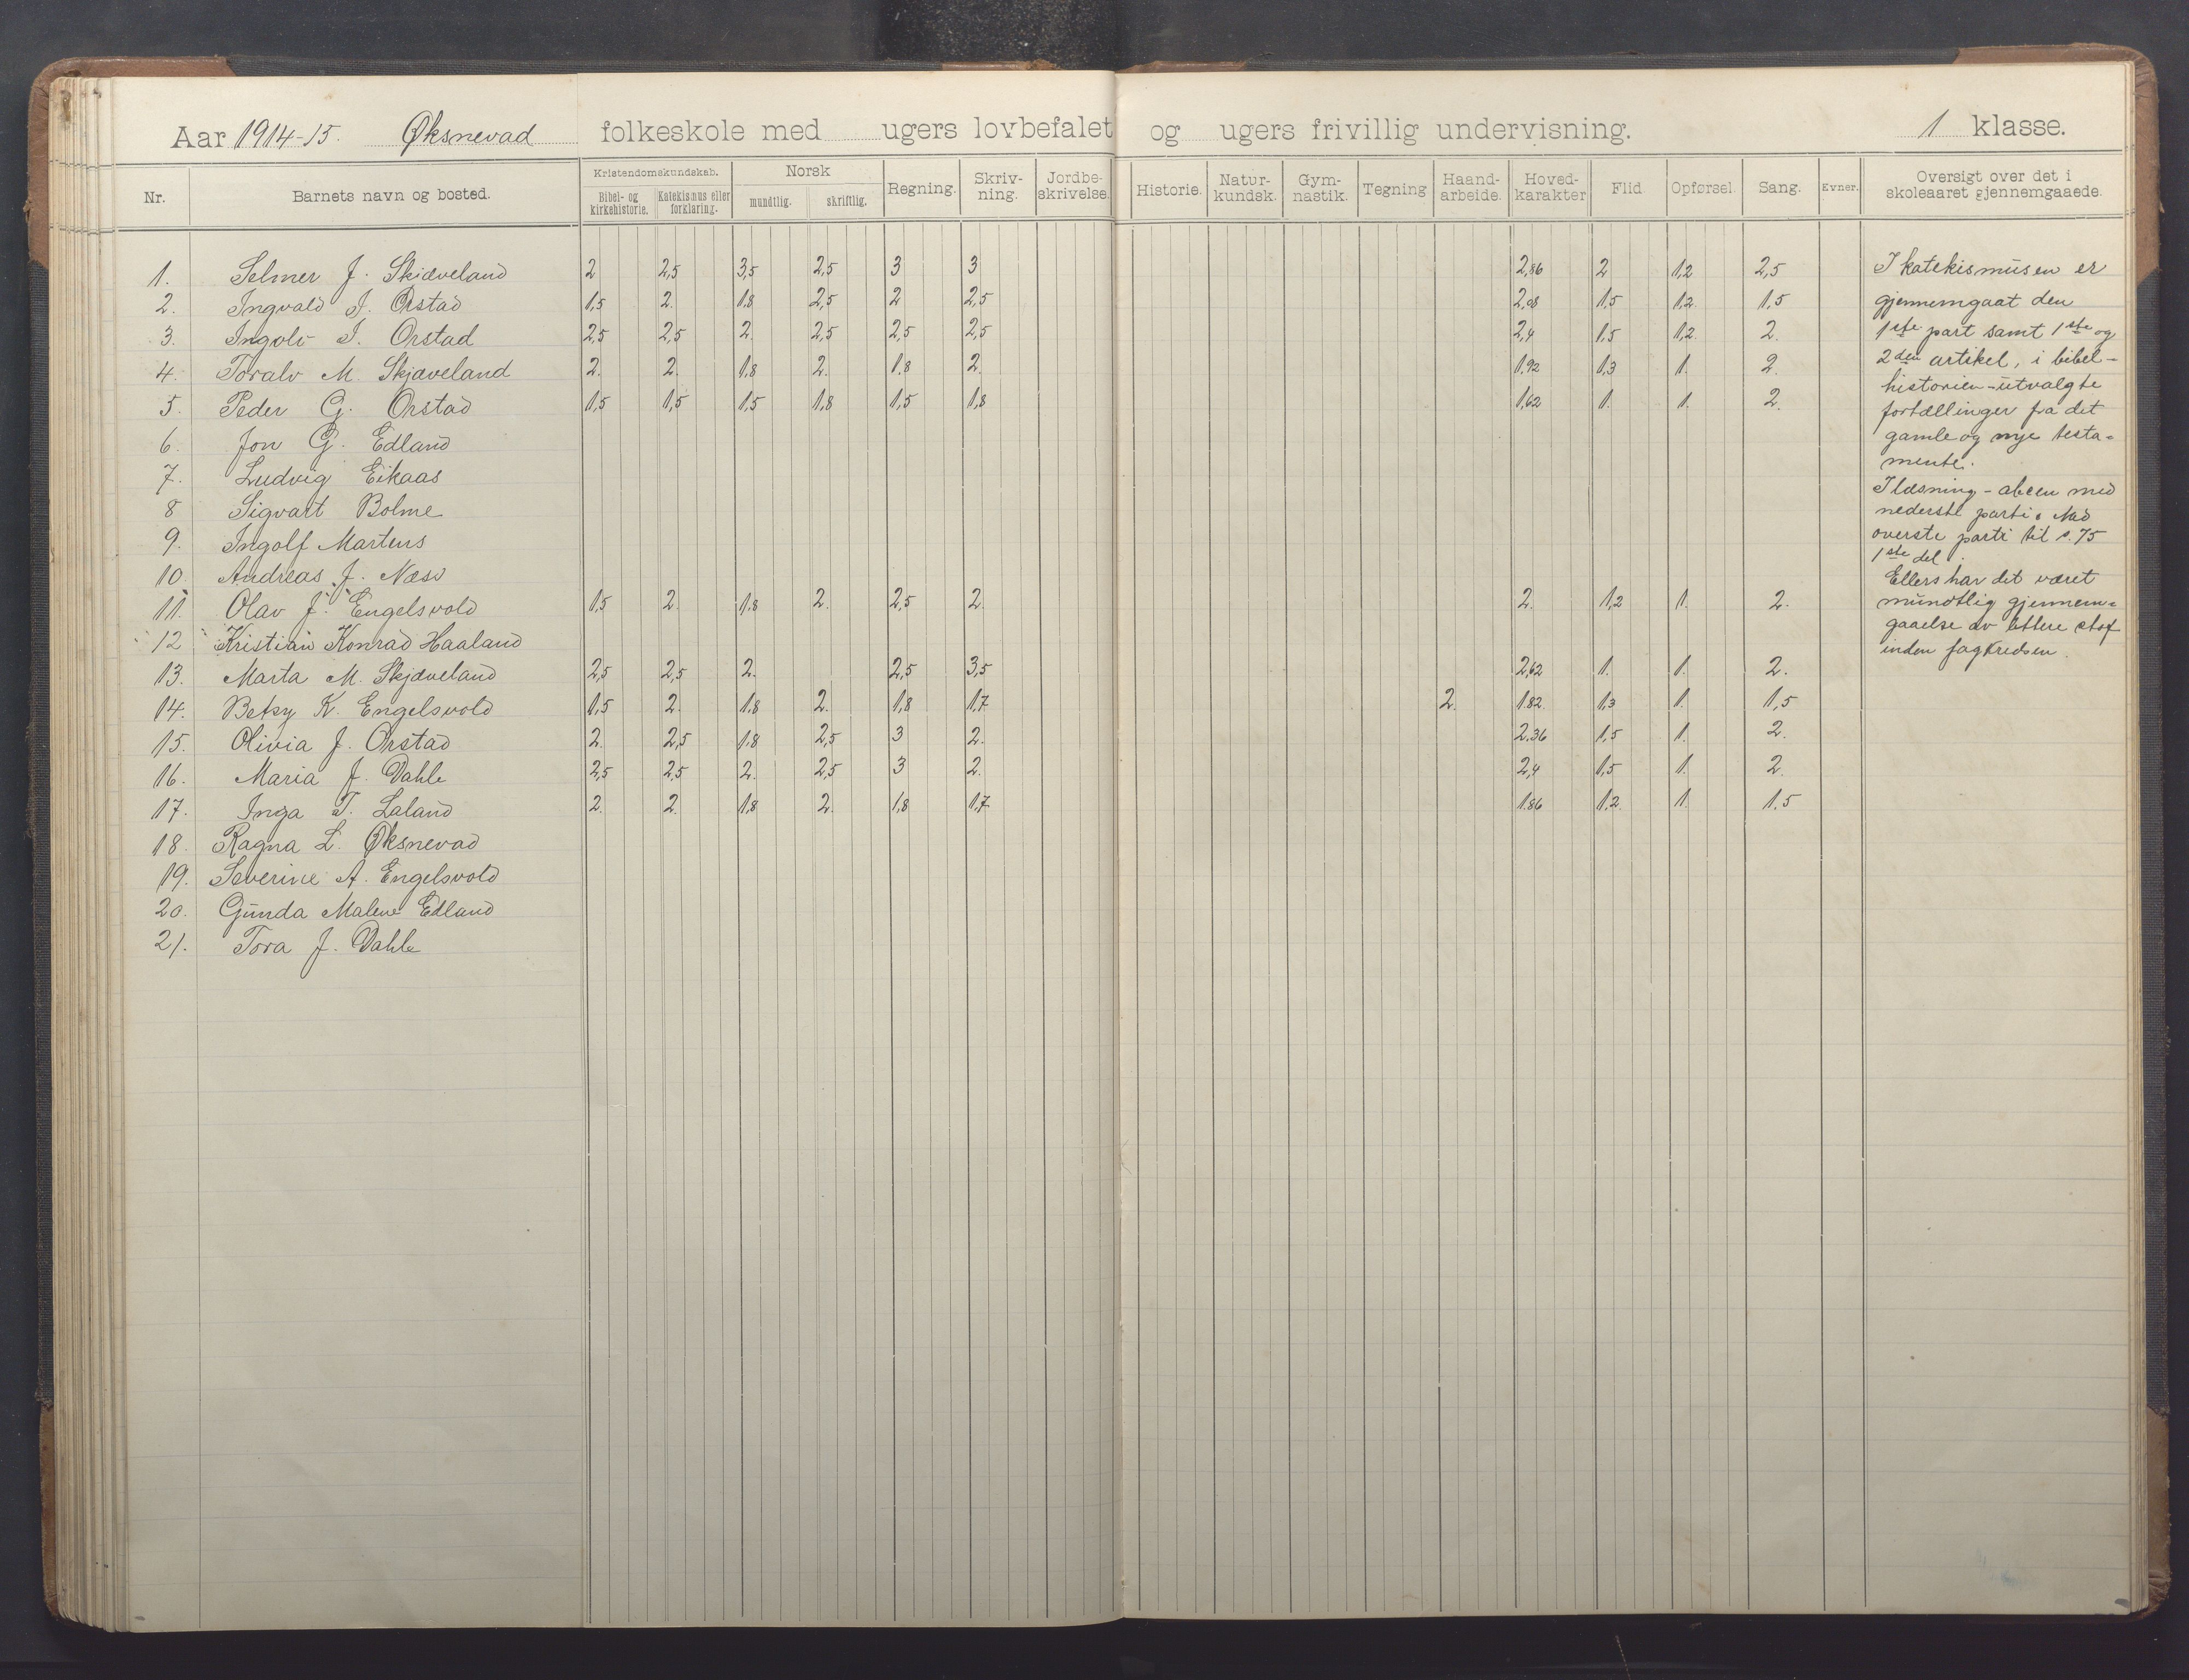 Aar 1914-15. Øksnevad folkeskole med ugers lovbefalet og ugers frivillig undervisning. 1 klasse.
Nr. Barnets navn og bosted. Kristendomskundskab. Bibel- og kirkehistorie. Katekismus eller forklaring. Norsk mundtlig. skriftlig. Regning. Skriv-ning. Jordbe-skrivelse. Historie. Natur-kundsk. Gym-nastik. Tegning Haand-arbeide. Hoved-karakter Flid Opførsel. Sang. Evner. Oversigt over det i skoleaaret gjennemgaaede.
1. Selmer J. Skjæveland 2 2,5 3,5 2,5 3 3 2,86 2 1,2 2,5
2. Ingvald J. Orstad 1,5 2. 1,8 2,5 2 2,5 2,08 1,5 1,2. 1,5
3. Ingolv I. Orstad 2,5 2,5 2. 2,5 2,5 2,5 2,4 1,5 1,2. 2.
4. Toralv M. Skjæveland 2. 2. 1,8 2. 1.8 2. 1.92 1,3 1. 2.
5. Peder G. Orstad 1,5 1,5 1,5 1,8 1,5 1,8 1,62 1. 1. 2.
6. Jon G. Edland
7. Ludvig Eikaas
8 Sigvart Bolme
9. Ingolf Martens
10. Andreas J. Næss
11. Olav J. Engelsvold 1,5 2. 1.8 2. 2,5 2. 2. 1,2 1. 2.
12 Kristian Konrad Haaland
13. Marta M. Skjæveland 2,5 2,5 2. 2,5 3,5 2,62 1. 1. 2.
14. Betsy K. Engelsvold 1,5 2. 1,8 2. 1,8 1,7 2. 1.82. 1,3 1. 1,5
15. Olivia J. Orstad 2. 2,5 1.8 2,5 3 2. 2.36 1,5 1. 2.
16. Maria J. Dahle 2,5 2,5 2. 2,5 3 2. 2,4 1,5 1. 2.
17. Inga T. Laland 2. 2. 1,8 2. 1,8 1,7 1.86 1,2. 1. 1.5
18. Ragna L. Øksnevad
19. Severine A. Engelsvold
20. Gunda Malene Edland
21. Tora J. Dahle
I katekismusen er
gjennemgaat den
1ste part samt 1ste og
2den artikel, i bibel-
historien - utvalgte
fortællinger fra det
gamle og nye testa-
mente.
I læsning - abcen med
nederste parti. Med
øverste parti til s. 75
1ste del.
Ellers har det været
mundtlig gjennem-
gaaelse av lettere stof
inden fagkredsen.